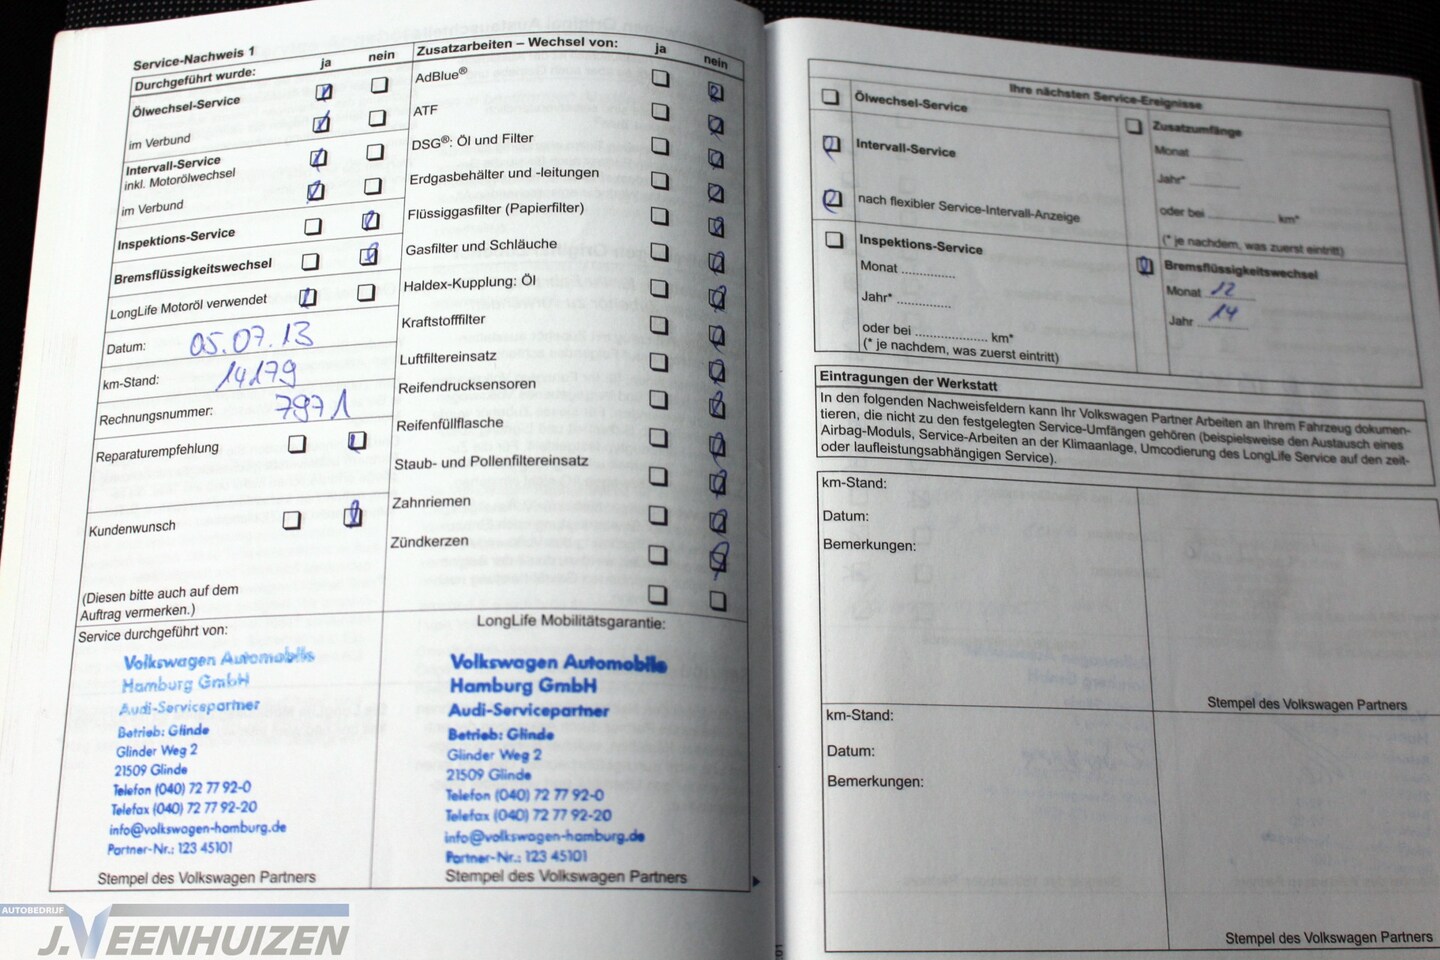 Service-Nachweis 1
Durchgeführt wurde: ja nein
Ölwechsel-Service
im Verbund
Intervall-Service
inkl. Motorölwechsel
im Verbund
Inspektions-Service
Bremsflüssigkeitswechsel
LongLife Motoröl verwendet
Datum: 05.07.13
km-Stand: 14179
Rechnungsnummer: 7971
Reparaturempfehlung
Kundenwunsch
(Diesen bitte auch auf dem
Auftrag vermerken.)
Zusatzarbeiten – Wechsel von: ja nein
AdBlue®
ATF
DSG®: Öl und Filter
Erdgasbehälter und -leitungen
Flüssiggasfilter (Papierfilter)
Gasfilter und Schläuche
Haldex-Kupplung: Öl
Kraftstofffilter
Luftfiltereinsatz
Reifendrucksensoren
Reifenfüllflasche
Staub- und Pollenfiltereinsatz
Zahnriemen
Zündkerzen
Service durchgeführt von:
Volkswagen Automobile
Hamburg GmbH
Audi-Servicepartner
Betrieb: Glinde
Glinder Weg 2
21509 Glinde
Telefon (040) 72 77 92-0
Telefax (040) 72 77 92-20
info@volkswagen-hamburg.de
Partner-Nr.: 123 45101
Stempel des Volkswagen Partners
LongLife Mobilitätsgarantie:
Volkswagen Automobile
Hamburg GmbH
Audi-Servicepartner
Betrieb: Glinde
Glinder Weg 2
21509 Glinde
Telefon (040) 72 77 92-0
Telefax (040) 72 77 92-20
info@volkswagen-hamburg.de
Partner-Nr.: 123 45101
Stempel des Volkswagen Partners
Ihre nächsten Service-Ereignisse
Ölwechsel-Service
Intervall-Service
nach flexibler Service-Intervall-Anzeige
Inspektions-Service
Monat ..............
Jahr* ..............
oder bei .................. km*
(* je nachdem, was zuerst eintritt)
Zusatzumfänge
Monat ..............
Jahr* ..............
oder bei .................. km*
(* je nachdem, was zuerst eintritt)
Bremsflüssigkeitswechsel
Monat 12
Jahr 14
Eintragungen der Werkstatt
In den folgenden Nachweisfeldern kann Ihr Volkswagen Partner Arbeiten an Ihrem Fahrzeug dokumen-
tieren, die nicht zu den festgelegten Service-Umfängen gehören (beispielsweise den Austausch eines
Airbag-Moduls, Service-Arbeiten an der Klimaanlage, Umcodierung des LongLife Service auf den zeit-
oder laufleistungsabhängigen Service).
km-Stand:
Datum:
Bemerkungen:
Stempel des Volkswagen Partners
km-Stand:
Datum:
Bemerkungen:
Stempel des Volkswagen Partners
AUTOBEDRIJF
J.VEENHUIZEN